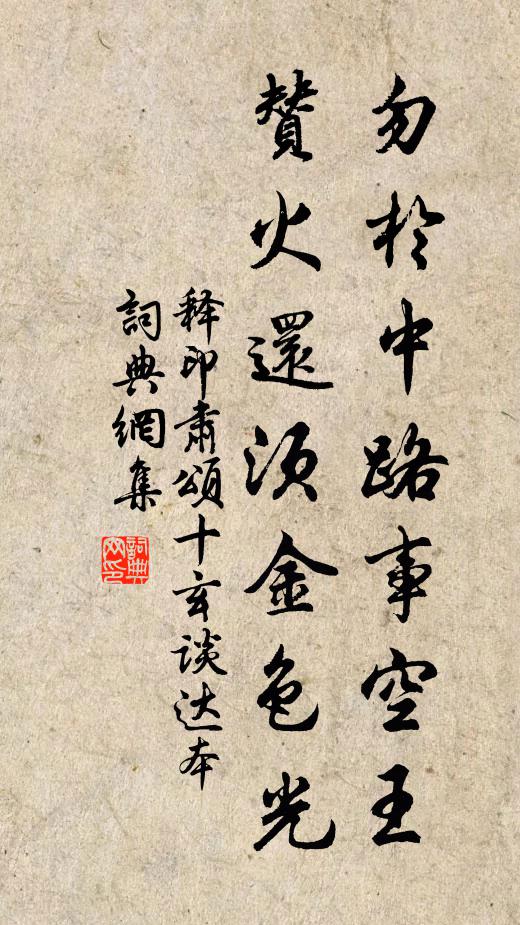 勿於中路事空王
賛火還須金色光
释印肅頌十玄談达本
詞典網集
詞典网印